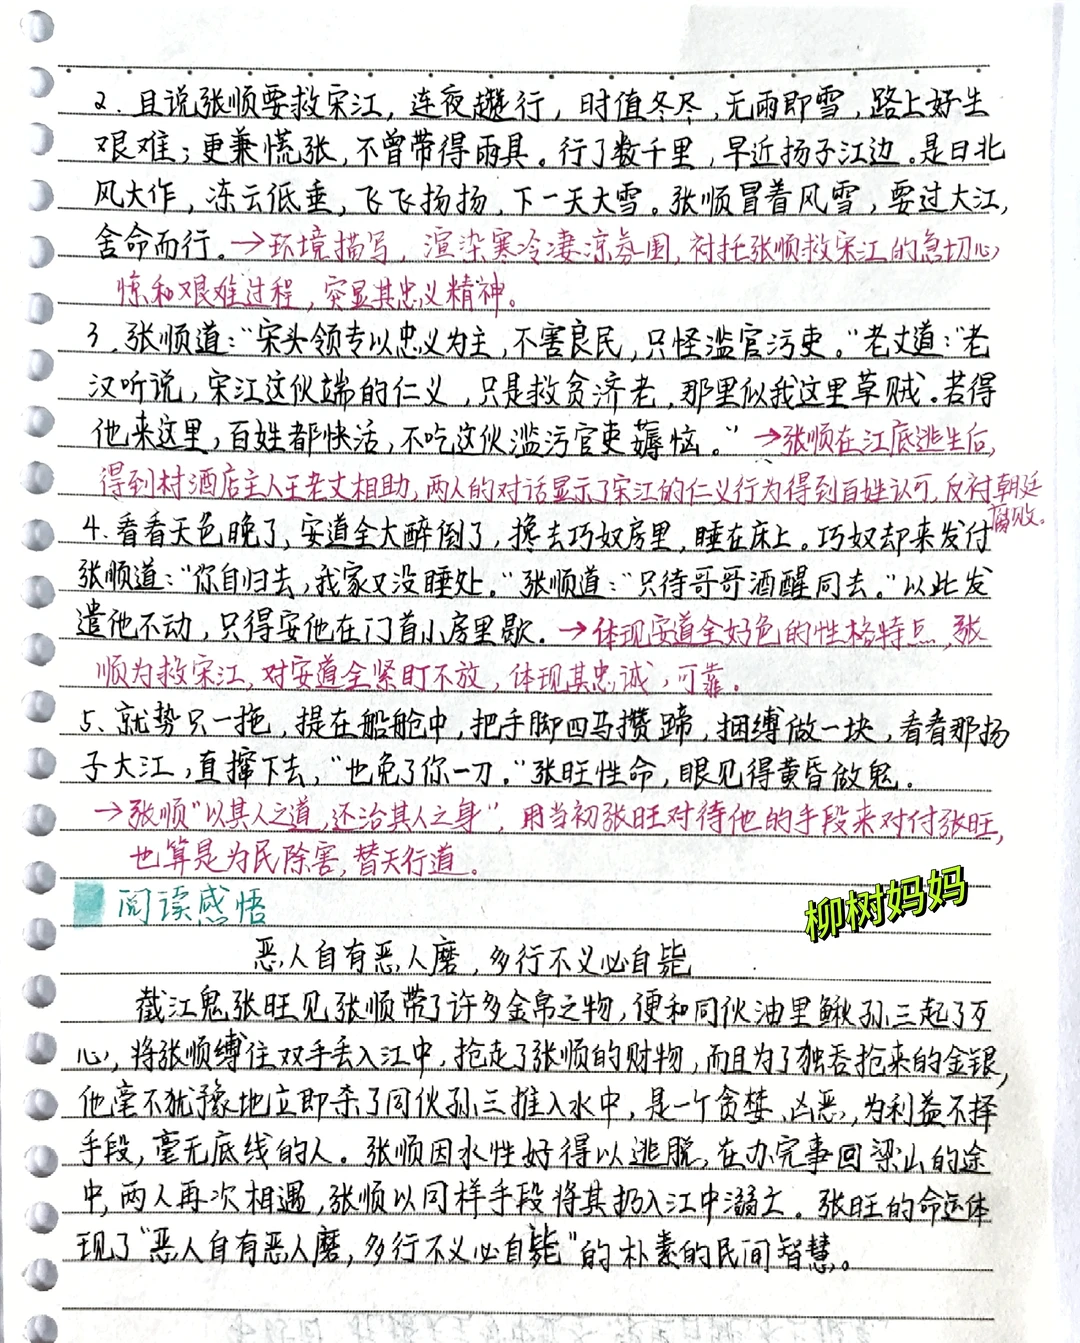 2.且说张顺要救宋江，连夜趱行，时值冬尽，无雨即雪，路上好生
艰难；更兼慌张，不曾带得雨具。行了数千里，早近扬子江边。是日北
风大作，冻云低垂，飞飞扬扬，下一天大雪。张顺冒着风雪，要过大江，
舍命而行。→环境描写，渲染寒冷凄凉氛围，衬托张顺救宋江的急切心
情和艰难过程，突显其忠义精神。
3.张顺道："宋头领专以忠义为主，不害良民，只怪滥官污吏。"老丈道："老
汉听说，宋江这伙端的仁义，只是救贫济老，那里似我这里草贼。若得
他来这里，百姓都快活，不吃这伙滥污官吏薅恼。"→张顺在江底逃生后，
得到村酒店主人王老丈相助，两人的对话显示了宋江的仁义行为得到百姓认可，反衬朝廷
腐败。
4.看看天色晚了，安道全大醉倒了，搀去巧奴房里，睡在床上。巧奴却来发付
张顺道："你自归去，我家又没睡处。"张顺道："只待哥哥酒醒同去。"以此发
遣他不动，只得安他在门首小房里歇。→体现安道全好色的性格特点，张
顺为救宋江，对安道全紧盯不放，体现其忠诚，可靠。
5.就势只一拖，提在船舱中，把手脚四马攒蹄，捆缚做一块，看看那扬
子大江，直撺下去，"也免了你一刀。"张旺性命，眼见得黄昏做鬼。
→张顺"以其人之道，还治其人之身"，用当初张旺对待他的手段来对付张旺，
也算是为民除害，替天行道。
阅读感悟
柳树妈妈
恶人自有恶人磨，多行不义必自毙
截江鬼张旺见张顺带了许多金帛之物，便和同伙油里鳅孙三起了歹
心，将张顺缚住双手丢入江中，抢走了张顺的财物，而且为了独吞抢来的金银，
他毫不犹豫地立即杀了同伙孙三推入水中，是一个贪婪、凶恶，为利益不择
手段，毫无底线的人。张顺因水性好得以逃脱，在办完事回梁山的途
中，两人再次相遇，张顺以同样手段将其扔入江中溺亡。张旺的命运体
现了"恶人自有恶人磨，多行不义必自毙"的朴素的民间智慧。